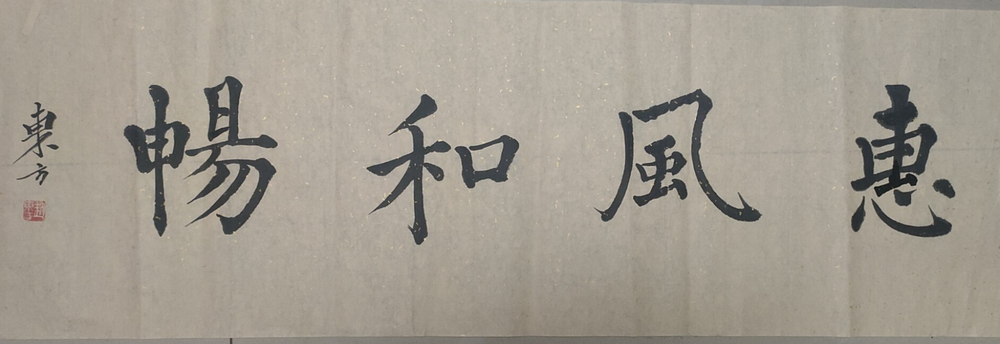 惠風和暢
東方